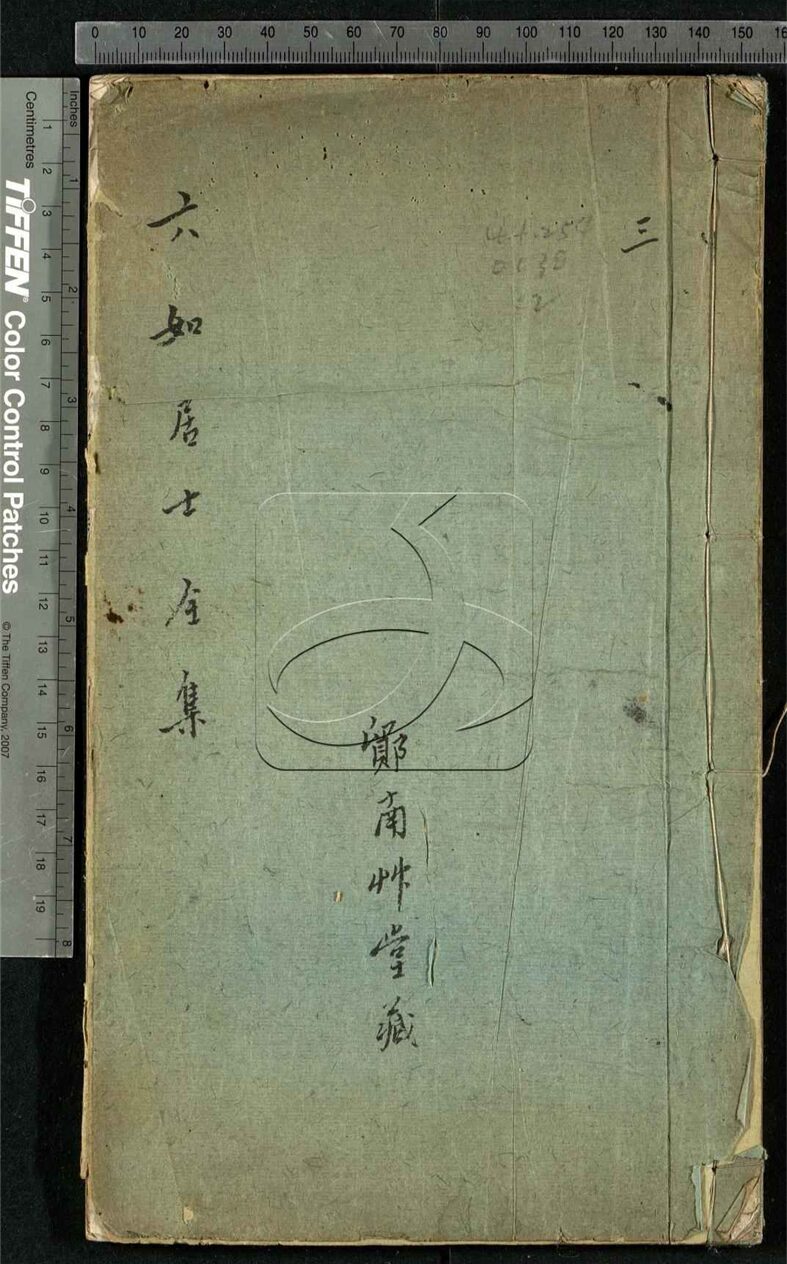 三
鄮南艸堂藏
六如居士全集
0 10 20 30 40 50 60 70 80 90 100 110 120 130 140 150 16
Inches
Centimetres
1 2 3 4 5 6 7 8
1 2 3 4 5 6 7 8 9 10 11 12 13 14 15 16 17 18 19
TIFFEN® Color Control Patches
© The Tiffen Company, 2007